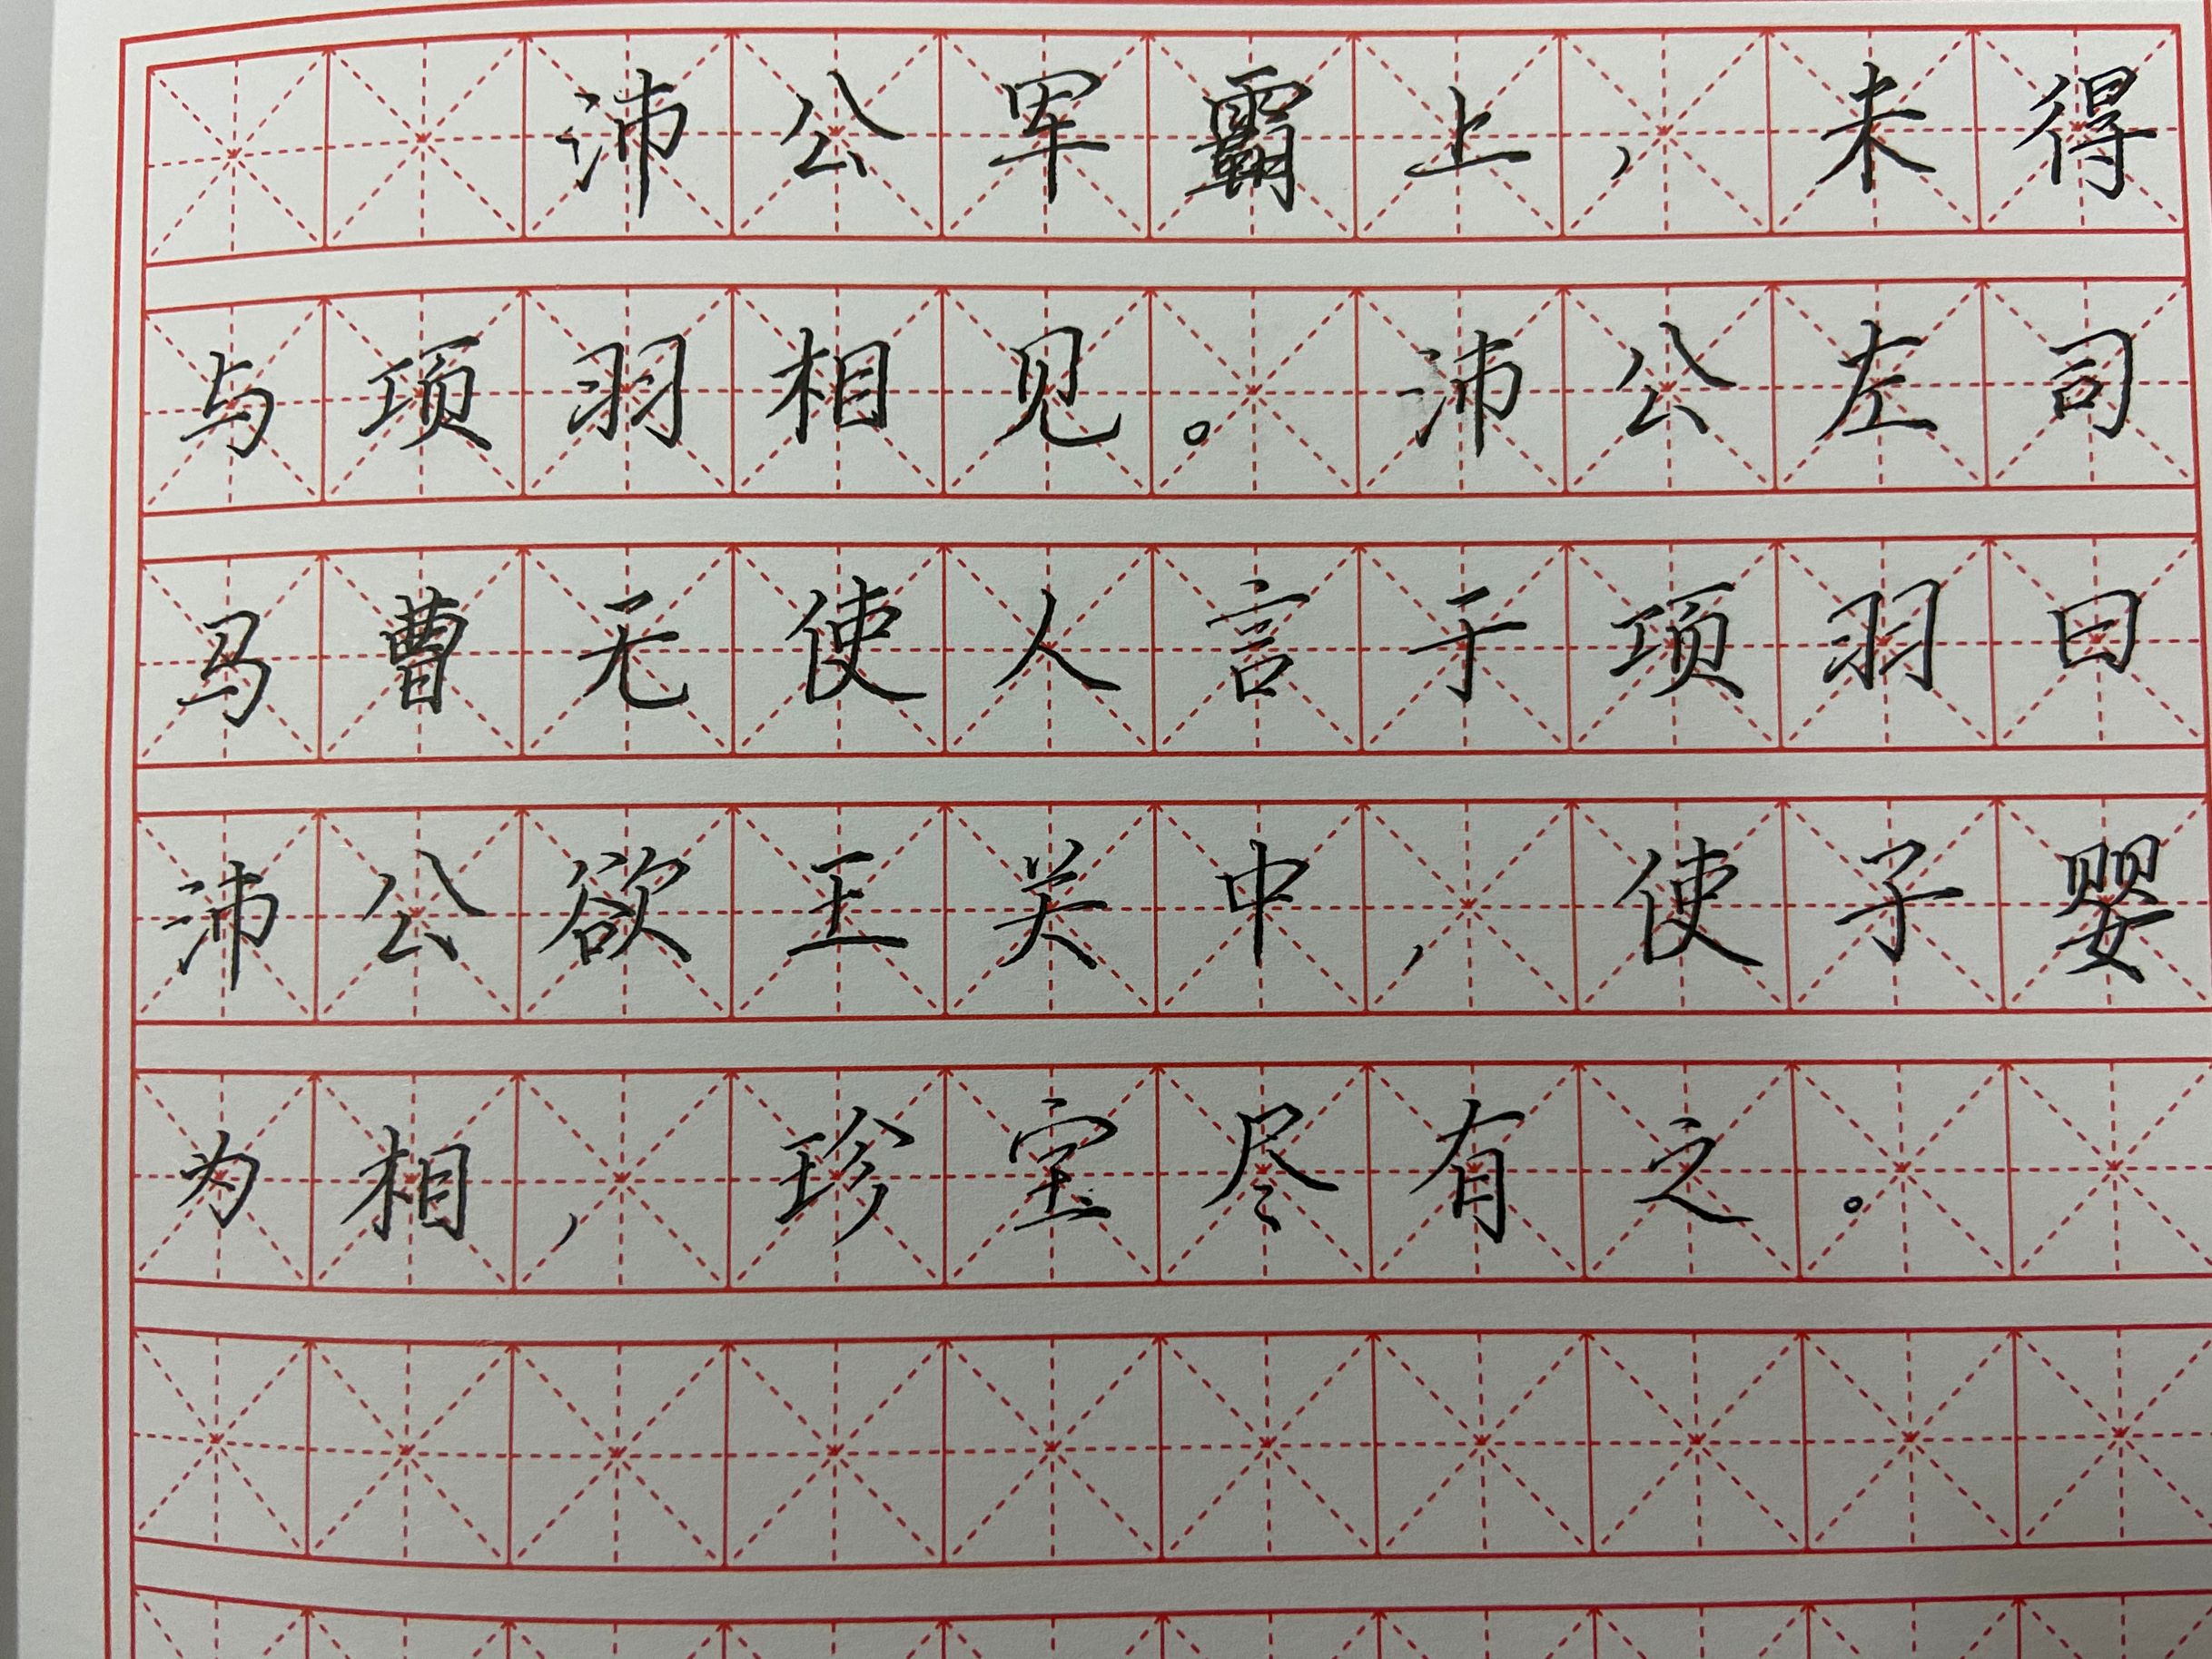 沛公军霸上，未得
与项羽相见。沛公左司
马曹无使人言于项羽曰
沛公欲王关中，使子婴
为相，珍宝尽有之。